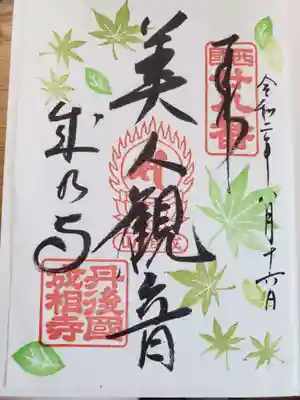 令和二年八月十六日
西国
廿八番
奉拝
美人観音
成相寺
丹後國
成相寺